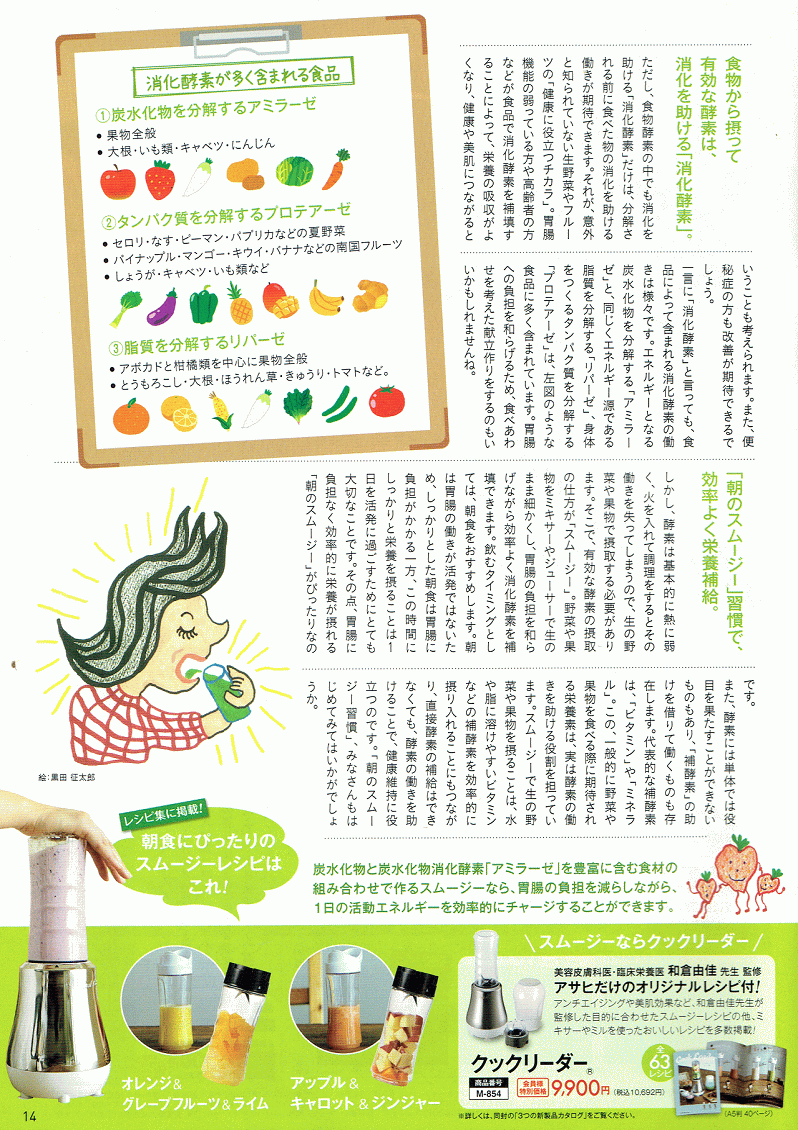 消化酵素が多く含まれる食品
①炭水化物を分解するアミラーゼ
● 果物全般
● 大根・いも類・キャベツ・にんじん
②タンパク質を分解するプロテアーゼ
● セロリ・なす・ピーマン・パプリカなどの夏野菜
● パイナップル・マンゴー・キウイ・バナナなどの南国フルーツ
● しょうが・キャベツ・いも類など
③脂質を分解するリパーゼ
● アボカドと柑橘類を中心に果物全般
● とうもろこし・大根・ほうれん草・きゅうり・トマトなど。
食物から摂って
有効な酵素は、
消化を助ける「消化酵素」。
ただし、食物酵素の中でも消化を
助ける「消化酵素」だけは、分解さ
れる前に食べた物の消化を助ける
働きが期待できます。それが、意外
と知られていない生野菜やフルー
ツの「健康に役立つチカラ」。胃腸
機能の弱っている方や高齢者の方
などが食品で消化酵素を補填す
ることによって、栄養の吸収がよ
くなり、健康や美肌につながると
いうことも考えられます。また、便
秘症の方も改善が期待できるで
しょう。
一言に「消化酵素」と言っても、食
品によって含まれる消化酵素の働
きは様々です。エネルギーとなる
炭水化物を分解する「アミラー
ゼ」と、同じくエネルギー源である
脂質を分解する「リパーゼ」、身体
をつくるタンパク質を分解する
「プロテアーゼ」は、左図のような
食品に多く含まれています。胃腸
への負担を和らげるため、食べあわ
せを考えた献立作りをするのもい
いかもしれませんね。
「朝のスムージー」習慣で、
効率よく栄養補給。
しかし、酵素は基本的に熱に弱
く、火を入れて調理をするとその
働きを失ってしまうので、生の野
菜や果物で摂取する必要があり
ます。そこで、有効な酵素の摂取
の仕方が「スムージー」。野菜や果
物をミキサーやジューサーで生の
まま細かくし、胃腸の負担を和ら
げながら効率よく消化酵素を補
填できます。飲むタイミングとし
ては、朝食をおすすめします。朝
は胃腸の働きが活発ではないた
め、しっかりとした朝食は胃腸に
負担がかかる一方、この時間に
しっかりと栄養を摂ることは1
日を活発に過ごすためにとても
大切なことです。その点、胃腸に
負担なく効率的に栄養が摂れる
「朝のスムージー」がぴったりなの
です。
また、酵素には単体では役
目を果たすことができない
ものもあり、「補酵素」の助
けを借りて働くものも存
在します。代表的な補酵素
は、「ビタミン」や「ミネラ
ル」。この、一般的に野菜や
果物を食べる際に期待され
る栄養素は、実は酵素の働
きを助ける役割を担ってい
ます。スムージーで生の野
菜や果物を摂ることは、水
や脂に溶けやすいビタミン
などの補酵素を効率的に
摂り入れることにもつなが
り、直接酵素の補給はでき
なくても、酵素の働きを助
けることで、健康維持に役
立つのです。「朝のスムー
ジー習慣」、みなさんもは
じめてみてはいかがでしょ
うか。
絵:黒田 征太郎
レシピ集に掲載!
朝食にぴったりの
スムージーレシピは
これ!
炭水化物と炭水化物消化酵素「アミラーゼ」を豊富に含む食材の
組み合わせで作るスムージーなら、胃腸の負担を減らしながら、
1日の活動エネルギーを効率的にチャージすることができます。
オレンジ&
グレープフルーツ&ライム
アップル&
キャロット&ジンジャー
\ スムージーならクックリーダー /
美容皮膚科医・臨床栄養医 和倉由佳 先生 監修
アサヒだけのオリジナルレシピ付!
アンチエイジングや美肌効果など、和倉由佳先生が
監修した目的に合わせたスムージーレシピの他、ミ
キサーやミルを使ったおいしいレシピを多数掲載!
クックリーダー®
全
63
レシピ
商品番号
M-854
会員様
特別価格
9,900円
(税込10,692円)
(A5判 40ページ)
※詳しくは、同封の「3つの新製品カタログ」をご覧ください。
14